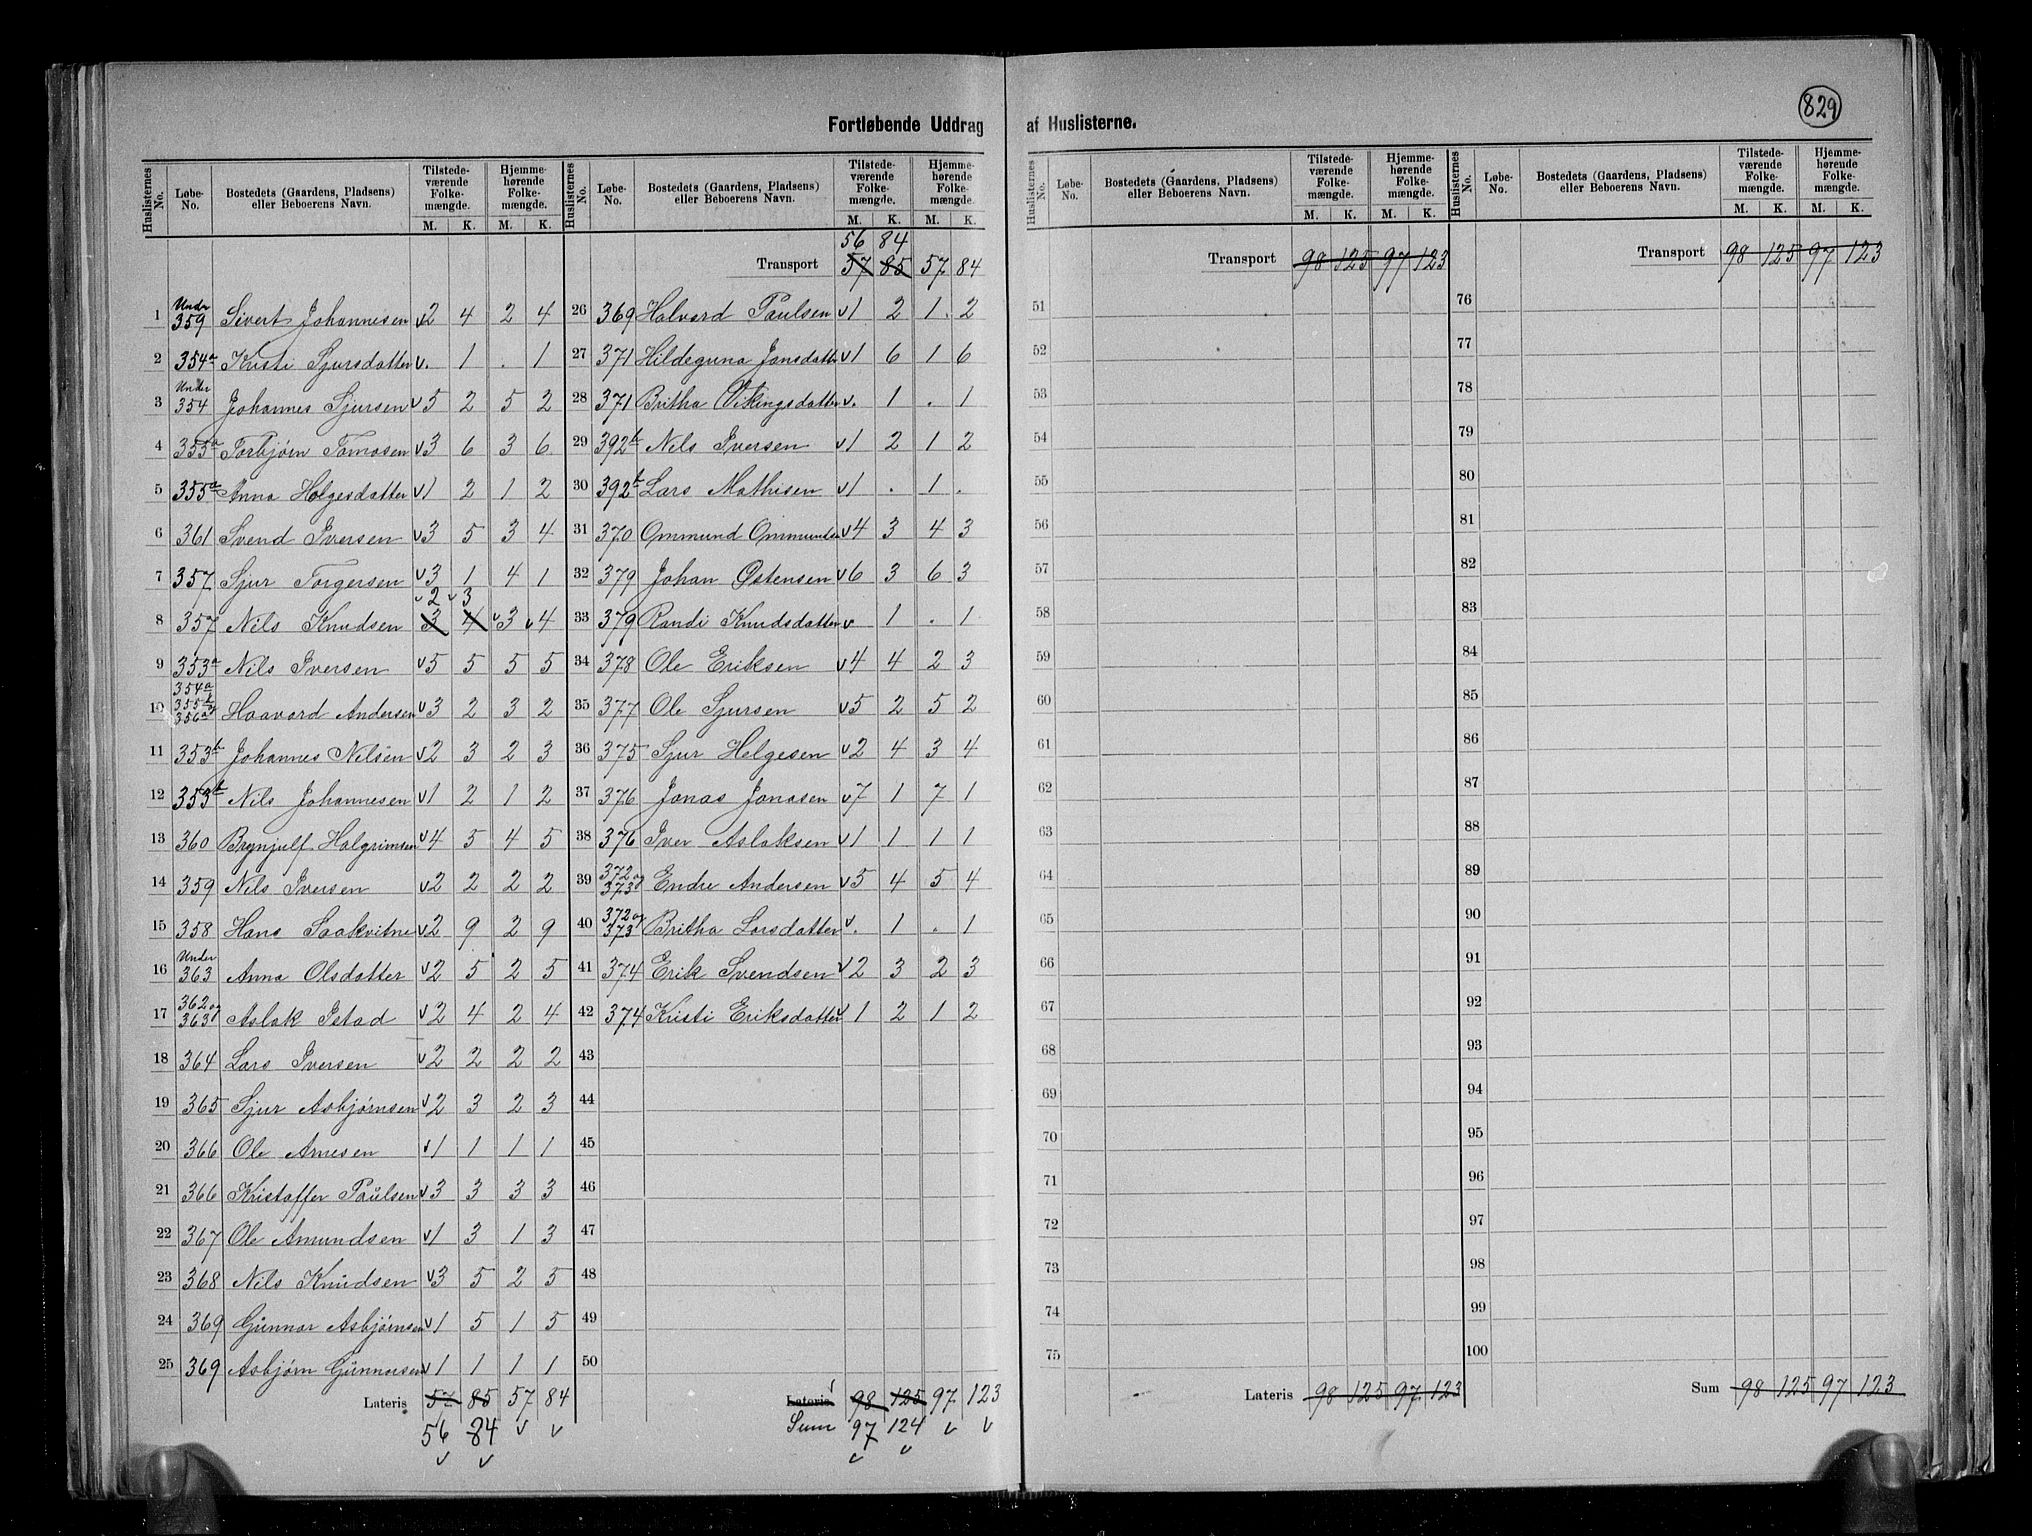 829
Fortløbende Uddrag af Huslisterne.
Huslisternes No. Løbe-No. Bostedets (Gaardens, Pladsens) eller Beboerens Navn. Tilstedeværende Folkemængde. M. K. Hjemmehørende Folkemængde. M. K.
1 Under 359 Sivert Johannesen v2 4 2 4
2 354a Kristi Sjursdatter v. 1 . 1
3 Under 354 Johannes Sjursen v5 2 5 2
4 355a Torbjørn Tomasen v3 6 3 6
5 355a Anna Helgesdatter v1 2 1 2
6 361 Svend Iversen v3 5 3 4
7 357 Sjur Torgersen v3 1 4 1
v2 v3
8 357 Nils Knudsen 3 4 v3 v4
9 353a Nils Iversen v5 5 5 5
10 354a 355b 356a Haavard Andersen v3 2 3 2
11 353b Johannes Nilsen v2 3 2 3
12 353b Nils Johannesen v1 2 1 2
13 360 Brynjulf Halgrimsen v4 5 4 5
14 359 Nils Iversen v2 2 2 2
15 358 Hans Saakvitne v2 9 2 9
16 Under 363 Anna Olsdatter v2 5 2 5
17 362 og 363 Aslak Istad v2 4 2 4
18 364 Lars Iversen v2 2 2 2
19 365 Sjur Asbjørnsen v2 3 2 3
20 366 Ole Arnesen v1 1 1 1
21 366 Kristaffer Paulsen v3 3 3 3
22 367 Ole Amundsen v1 3 1 3
23 368 Nils Knudsen v3 5 2 5
24 369 Gunnar Asbjørnsen v1 5 1 5
25 369 Asbjørn Gunnarsen v1 1 1 1
Lateris 57 85 57 84
56 84 v v
v v
Huslisternes No. Løbe-No. Bostedets (Gaardens, Pladsens) eller Beboerens Navn. Tilstedeværende Folkemængde. M. K. Hjemmehørende Folkemængde. M. K.
56 84
Transport 57 85 57 84
26 369 Halvard Paulsen v1 2 1 . 2
27 371 Hildeguna Jonsdatter v1 6 1 6
28 371 Britha Vikingsdatter v. 1 . 1
29 392b Nils Iversen v1 2 1 2
30 392b Lars Mathisen v1 . 1 .
31 370 Ommund Ommundsen v4 3 4 3
32 379 Johan Østensen v6 3 6 3
33 379 Randi Knudsdatter v 1 . 1
34 378 Ole Eriksen v4 4 2 3
35 377 Ole Sjursen v5 2 5 2
36 375 Sjur Helgesen v2 4 3 4
37 376 Jonas Jonasen v7 1 7 1
38 376 Iver Aslaksen v1 1 1 1
39 372 og 373 Endre Andersen v5 4 5 4
40 372 og 373 Britha Larsdatter v. 1 . 1
41 374 Erik Svendsen v2 3 2 3
42 374 Kristi Eriksdatter v1 2 1 2
43
44
45
46
47
48
49
50
Lateris 98 125 97 123
Sum 97 124 v v
v v
Huslisternes No. Løbe-No. Bostedets (Gaardens, Pladsens) eller Beboerens Navn. Tilstedeværende Folkemængde. M. K. Hjemmehørende Folkemængde. M. K.
Transport 98 125 97 123
51
52
53
54
55
56
57
58
59
60
61
62
63
64
65
66
67
68
69
70
71
72
73
74
75
Lateris 98 125 97 123
Huslisternes No. Løbe-No. Bostedets (Gaardens, Pladsens) eller Beboerens Navn. Tilstedeværende Folkemængde. M. K. Hjemmehørende Folkemængde. M. K.
Transport 98 125 97 123
76
77
78
79
80
81
82
83
84
85
86
87
88
89
90
91
92
93
94
95
96
97
98
99
100
Sum 98 125 97 123